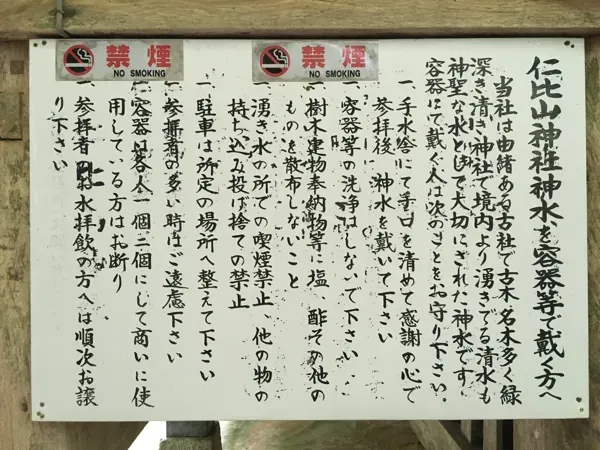 禁煙
NO SMOKING
禁煙
NO SMOKING
仁比山神社神水を容器等で戴く方へ
当社は由緒ある古社で古木名木多く緑
深き清き神社で境内より湧きでる清水も
神聖な水として大切にされた神水です。
容器にて戴く人は次のことをお守り下さい。
一、手水舎にて手口を清めて感謝の心で
参拝後、神水を戴いて下さい
一、容器等の洗浄はしないで下さい
一、樹木建物奉納物等に塩、酢その他の
ものを散布しないこと
一、湧き水の所での喫煙禁止、他の物の
持ち込み投げ捨ての禁止
一、駐車は所定の場所へ整えて下さい
一、参拝者の多い時はご遠慮下さい
一、容器は各人一個二個にして商いに使
用している方はお断り
一、参拝者のお水拝飲の方へは順次お譲
り下さい